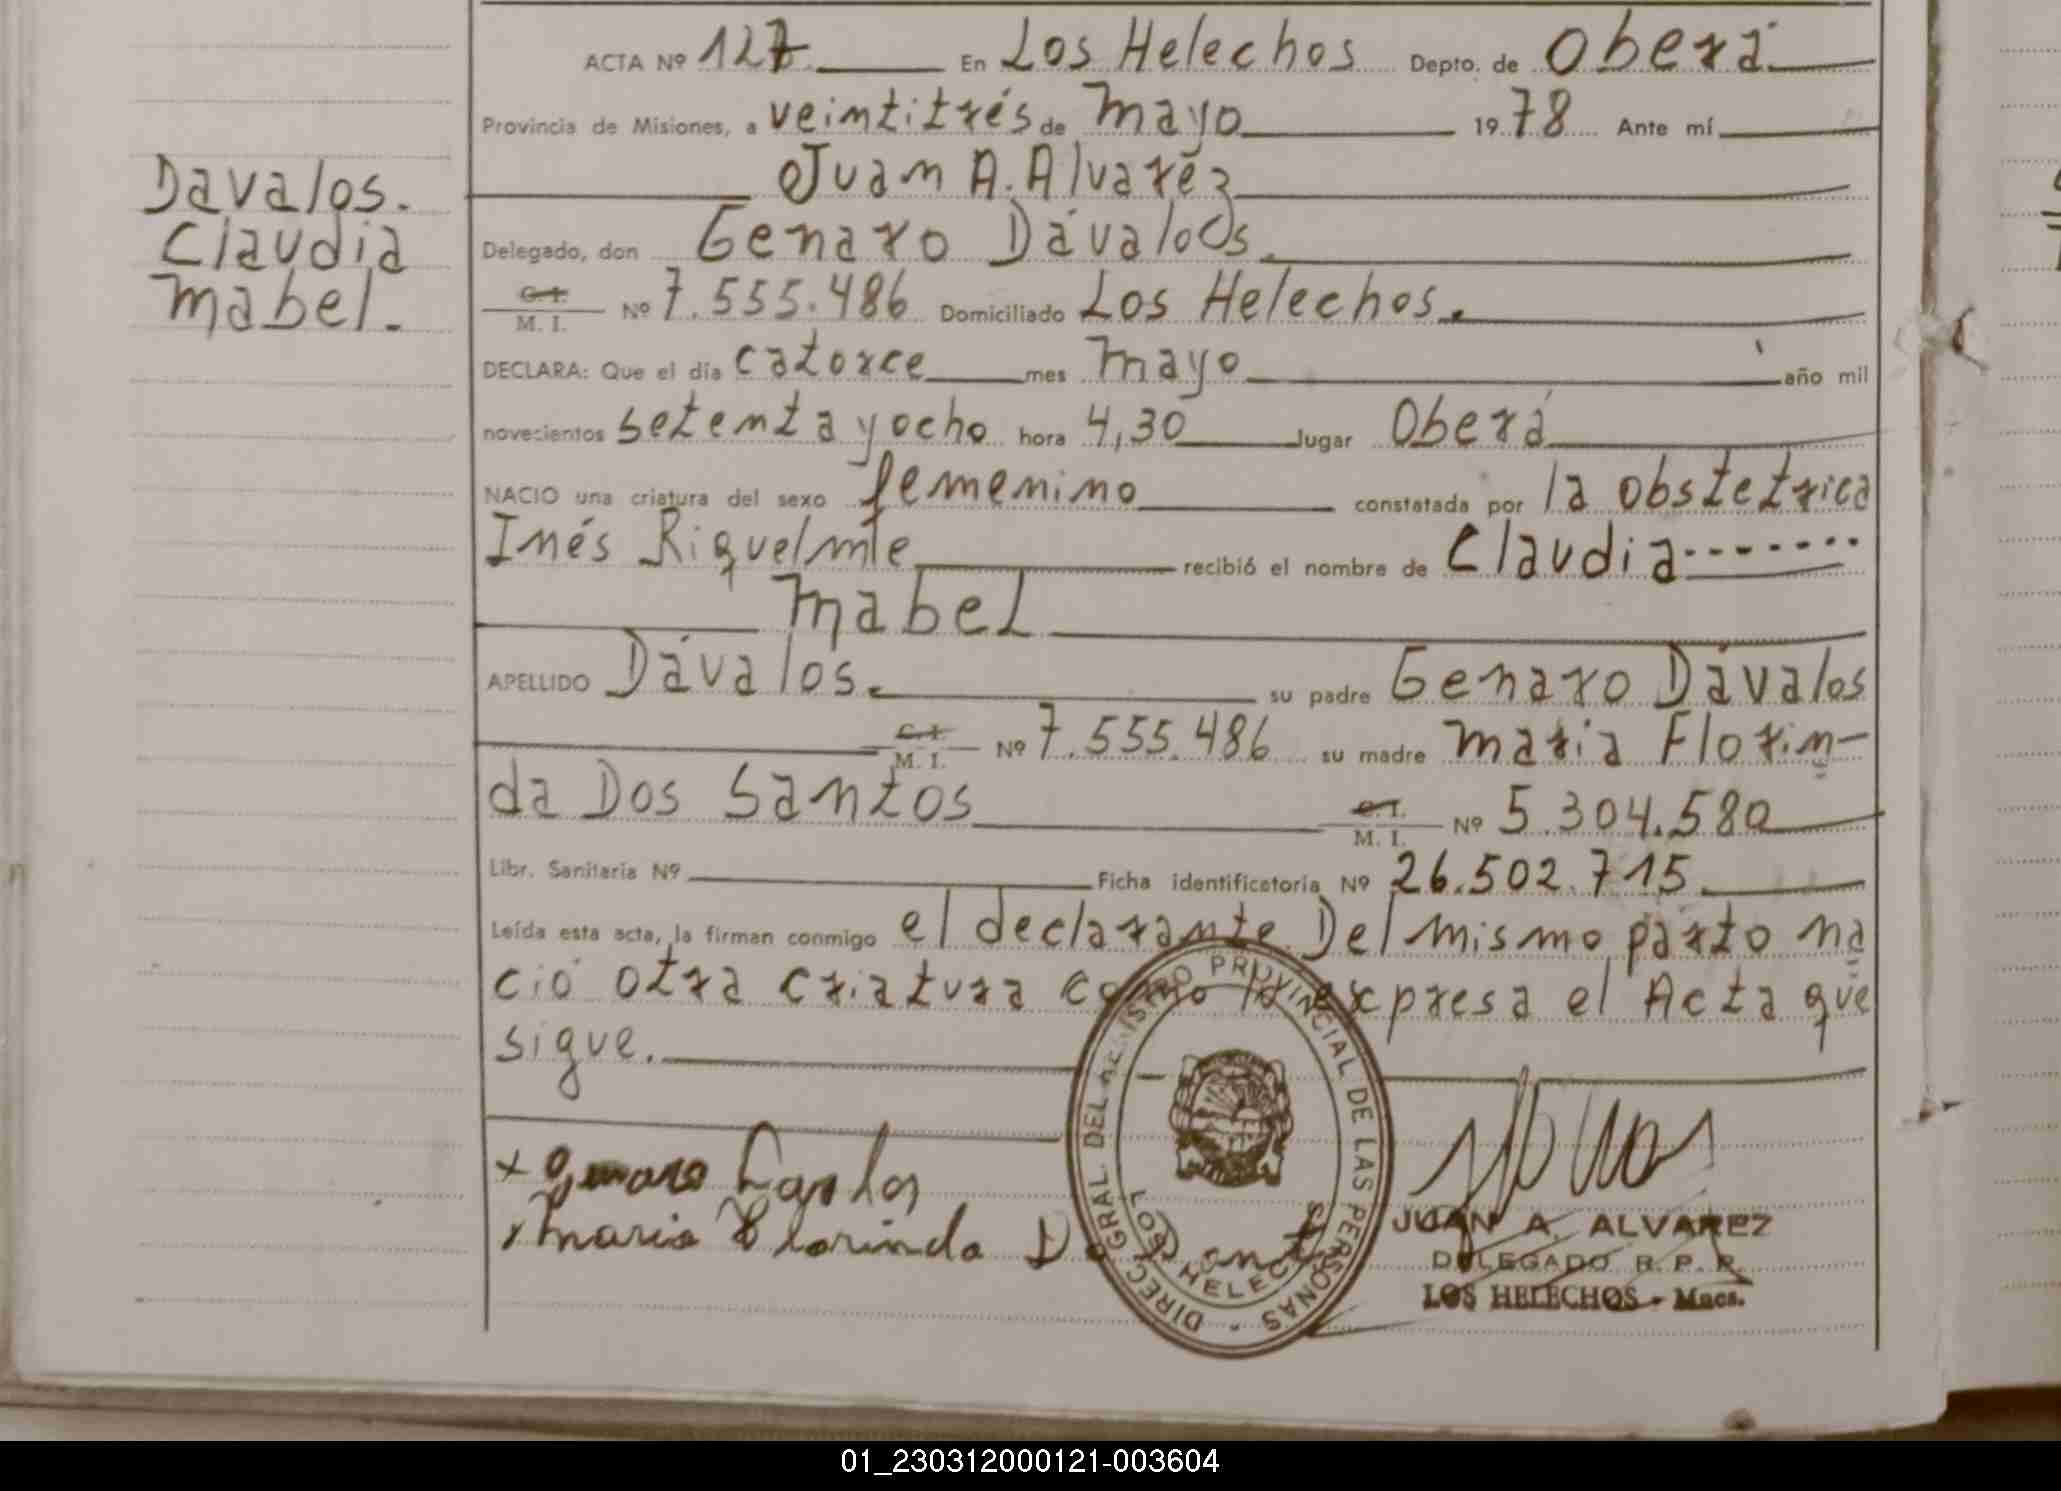 ACTA Nº 127 En Los Helechos Depto. de Oberá
Provincia de Misiones, a veintitrés de Mayo 19 78 Ante mí
Juan A. Alvarez
Davalos.
Claudia
Mabel.
Delegado, don Genaro Dávalos.
C.I. / M. I. Nº 7.555.486 Domiciliado Los Helechos.
DECLARA: Que el día catorce mes Mayo año mil
novecientos setenta y ocho hora 4,30 lugar Oberá
NACIO una criatura del sexo femenino constatada por la obstetrica
Inés Riquelme recibió el nombre de Claudia
Mabel
APELLIDO Dávalos. su padre Genaro Dávalos
C.I. / M. I. Nº 7.555.486 su madre Maria Florin-
da Dos Santos C.I. / M. I. Nº 5.304.580
Libr. Sanitaria Nº Ficha identificatoria Nº 26.502.715
Leída esta acta, la firman conmigo el declarante Del mismo parto na
ció otra criatura como lo expresa el Acta que
sigue.
DIREC. GRAL DEL REGISTRO PROVINCIAL DE LAS PERSONAS
LOS HELECHOS
x Genaro
x Maria Florinda
JUAN A. ALVAREZ
DELEGADO R. P. P.
LOS HELECHOS - Mnes.
01_230312000121-003604